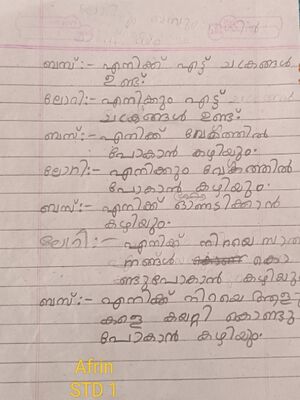 ബസ്:- എനിക്ക് എട്ട് ചക്രങ്ങൾ
ഉണ്ട്.
ലോറി:- എനിക്കും എട്ട്
ചക്രങ്ങൾ ഉണ്ട്.
ബസ്:- എനിക്ക് വേഗത്തിൽ
പോകാൻ കഴിയും.
ലോറി:- എനിക്കും വേഗത്തിൽ
പോകാൻ കഴിയും.
ബസ്:- എനിക്ക് ഹോണടിക്കാൻ
കഴിയും.
ലോറി:- എനിക്ക് നിറയെ സാധ
നങ്ങൾ കൊ
ണ്ടുപോകാൻ കഴിയും
ബസ്:- എനിക്ക് നിറയെ ആളു
കളെ കയറ്റി കൊണ്ടു
പോകാൻ കഴിയും.
Afrin
STD 1